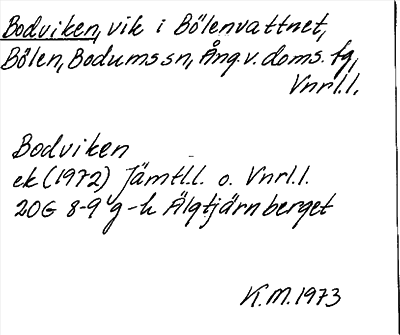 Bodviken, vik i Bölenvattnet,
Bölen, Bodums sn, Ång v. doms. fg,
Vnrl. l.
Bodviken
ek (1972) Jämtl. l. o. Vnrl. l.
20G 8-9 g-h Älgtjärnberget
K. M. 1973